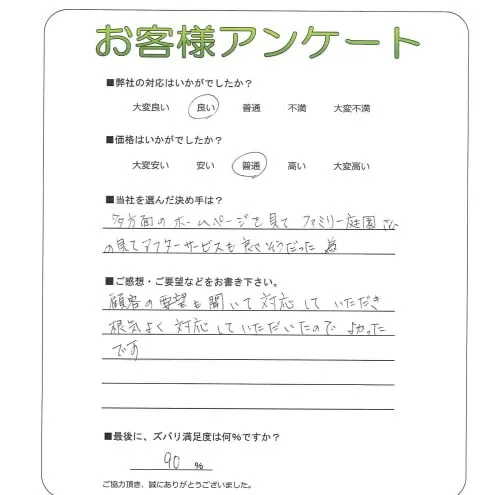 お客様アンケート
■弊社の対応はいかがでしたか？
大変良い 良い 普通 不満 大変不満
■価格はいかがでしたか？
大変安い 安い 普通 高い 大変高い
■当社を選んだ決め手は？
多方面のホームページを見て ファミリー庭園さん
の見てアフターサービスも良さそうだった
■ご感想・ご要望などをお書き下さい。
顧客の要望も聞いて対応して いただき
根気よく対応していただいたので よかった
です
■最後に、ズバリ満足度は何%ですか？
90 %
ご協力頂き、誠にありがとうございました。